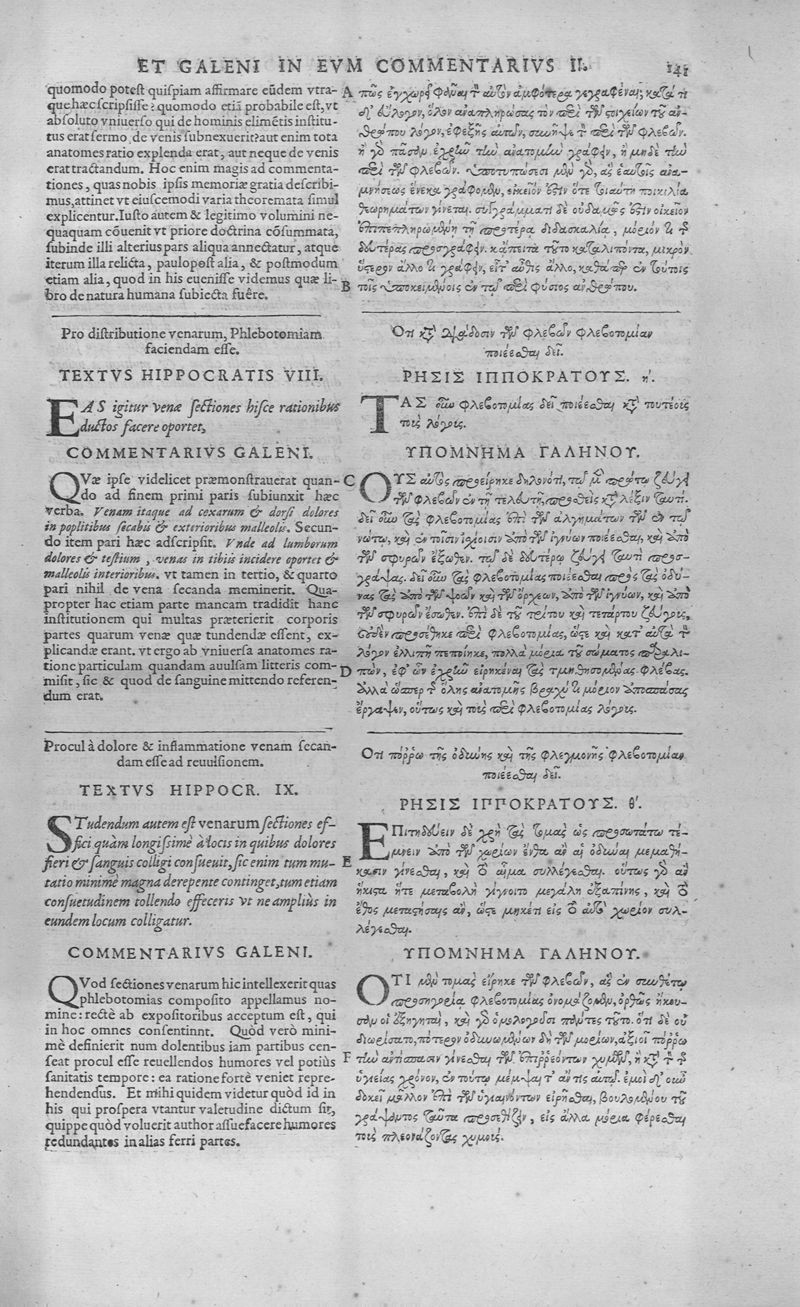 ET GALENI IN EVM COMMENTARIVS II. 141
quomodo potest quispiam affirmare eũdem vtra-
que hæc scripsisse? quomodo etiã probabile est, vt
absoluto vniuerso qui de hominis elimẽtis institu-
tus erat sermo, de venis subnexuerit? aut enim tota
anatomes ratio explenda erat, aut neque de venis
erat tractandum. Hoc enim magis ad commenta-
tiones, quas nobis ipsis memoriæ gratia describi-
mus, attinet vt eiuscemodi varia theoremata simul
explicentur. Iusto autem & legitimo volumini ne-
quaquam cõuenit vt priore doctrina cõsummata,
subinde illi alterius pars aliqua annectatur, atque
iterum illa relicta, paulopost alia, & postmodum
etiam alia, quod in his euenisse videmus quæ li-
bro de natura humana subiecta fuêre.
Pro distributione venarum, Phlebotomiam
faciendam esse.
TEXTVS HIPPOCRATIS VIII.
EAS igitur venæ sectiones hisce rationibus
ductos facere oportet,
COMMENTARIVS GALENI.
QVæ ipse videlicet præmonstrauerat quan-
do ad finem primi paris subiunxit hæc
verba. Venam itaque ad coxarum & dorsi dolores
in poplitibus secabis & exterioribus malleolis. Secun-
do item pari hæc adscripsit. Vnde ad lumborum
dolores & testium, venas in tibiis incidere oportet &
malleolis interioribus. vt tamen in tertio, & quarto
pari nihil de vena secanda meminerit. Qua-
propter hac etiam parte mancam tradidit hanc
institutionem qui multas præterierit corporis
partes quarum venæ quæ tundendæ essent, ex-
plicandæ erant. vt ergo ab vniuersa anatomes ra-
tione particulam quandam auulsam litteris com-
misit, sic & quod de sanguine mittendo referen-
dum erat.
Procul à dolore & inflammatione venam secan-
dam esse ad reuulsionem.
TEXTVS HIPPOCR. IX.
STudendum autem est venarum sectiones ef-
fici quàm longissimè à locis in quibus dolores
fieri & sanguis colligi consueuit, sic enim tum mu-
tatio minimè magna derepente continget, tum etiam
consuetudinem tollendo effeceris vt ne amplius in
eundem locum colligatur.
COMMENTARIVS GALENI.
QVod sectiones venarum hic intellexerit quas
phlebotomias composito appellamus no-
mine: rectè ab expositoribus acceptum est, qui
in hoc omnes consentinnt. Quòd verò mini-
mè definierit num dolentibus iam partibus cen-
seat procul esse reuellendos humores vel potiùs
sanitatis tempore: ea ratione fortè veniet repre-
hendendus. Et mihi quidem videtur quòd id in
his qui prospera vtantur valetudine dictum sit,
quippe quòd voluerit author assuefacere humores
redundantes in alias ferri partes.
A
B
C
D
E
F
πῶς ἐγχωρεῖ φάναι τὸν αὐτὸν ἀμφότερα γεγραφέναι; κατὰ τί
δ' εὔλογον, ὅλον ἀναπληρώσας τὸν περὶ τῶν στοιχείων τοῦ ἀν-
θρώπου λόγον, ἐφεξῆς αὐτῶν, συνῆψε τὸν περὶ τῶν φλεβῶν.
ἢ γὰρ πᾶσαν ἐχρῆν τὴν ἀνατομὴν γράφειν, ἢ μηδὲ τὴν
περὶ τῶν φλεβῶν. ὑποτυπώσεσι μὲν γὰρ, ἃς ἑαυτοῖς ἀνα-
μνήσεως ἕνεκα γράφομεν, οἰκεῖον ἐστὶν ἡ τοιαύτη ποικιλία
θεωρημάτων γίνεται. συγγράμματι δὲ οὐδαμῶς ἐστὶν οἰκεῖον
ἐπιπεπληρωμένῃ τῇ προτέρᾳ διδασκαλίᾳ, μόριόν τι τῆς
δευτέρας προσγράφειν. κἄπειτα τοῦτο καταλιπόντα, μικρὸν
ὕστερον ἄλλο τι γράφειν, εἶτ' αὖθις ἄλλο, καθάπερ ἐν τούτοις
τοῖς ὑποκειμένοις ἐν τῷ περὶ φύσιος ἀνθρώπου.
Ὅτι κατὰ διάδοσιν τῶν φλεβῶν φλεβοτομίαν
ποιέεσθαι δεῖ.
ΡΗΣΙΣ ΙΠΠΟΚΡΑΤΟΥΣ. ή.
ΤΑΣ οὖν φλεβοτομίας δεῖ ποιέεσθαι κατὰ τουτέοις
τοῖς λόγοις.
ΥΠΟΜΝΗΜΑ ΓΑΛΗΝΟΥ.
ΟΥΣ αὐτὸς προείρηκε δηλονότι, τῷ μὲν πρώτῳ ζεύγει
τῶν φλεβῶν ἐν τῇ τελευτῇ, προσθεὶς κατὰ λέξιν ταυτί.
δεῖ οὖν τὰς φλεβοτομίας ἐπὶ τῶν ἀλγημάτων τῶν ἐν τῷ
νώτῳ, καὶ ἐν τοῖσιν ἰσχίοισιν ἀπὸ τῶν ἰγνύων ποιέεσθαι, καὶ ἀπὸ
τῶν σφυρῶν ἔξωθεν. τῷ δὲ δευτέρῳ ζεύγει ταυτὶ προσ-
γράψας. δεῖ οὖν τὰς φλεβοτομίας ποιέεσθαι πρὸς τὰς ὀδύ-
νας τὰς ἀπὸ τῶν ψοῶν καὶ τῶν ὄρχεων, ἀπὸ τῶν ἰγνύων, καὶ ἀπὸ
τῶν σφυρῶν ἔσωθεν. ἐπὶ δὲ τοῦ τρίτου καὶ τετάρτου ζεύγους,
οὐδὲν προσέθηκε περὶ φλεβοτομίας, ὥστε καὶ κατ' αὐτὰ τὸν
λόγον ἐλλιπῆ πεποίηκε, πολλὰ μόρια τοῦ σώματος παραλι-
πὼν, ἐφ' ὧν ἐχρῆν εἰρηκέναι τὰς τμηθησομένας φλέβας.
ἀλλὰ ὥσπερ τῆς ὅλης ἀνατομῆς βραχύ τι μόριον ἀποσπάσας
ἔγραψεν, οὕτως καὶ τοῖς περὶ φλεβοτομίας λόγοις.
Ὅτι πόρρω τῆς ὀδύνης καὶ τῆς φλεγμονῆς φλεβοτομίαν
ποιέεσθαι δεῖ.
ΡΗΣΙΣ ΙΠΠΟΚΡΑΤΟΥΣ. θ'.
ΕΠιτηδεύειν δὲ χρὴ τὰς τομὰς ὡς προσωτάτω τέ-
μνειν ἀπὸ τῶν χωρίων ἔνθα ἂν αἱ ὀδύναι μεμαθή-
κασιν γίνεσθαι, καὶ τὸ αἷμα συλλέγεσθαι. οὕτως γὰρ ἂν
ἥκιστα ἥτε μεταβολὴ γίγνοιτο μεγάλη ἐξαπίνης, καὶ τὸ
ἔθος μεταστήσαις ἂν, ὥστε μηκέτι εἰς τὸ αὐτὸ χωρίον συλ-
λέγεσθαι.
ΥΠΟΜΝΗΜΑ ΓΑΛΗΝΟΥ.
ΟΤΙ μὲν τομὰς εἴρηκε τῶν φλεβῶν, ἃς ἐν συνθέτῳ
προσηγορίᾳ φλεβοτομίας ὀνομάζομεν, ὀρθῶς ἤκου-
σαν οἱ ἐξηγηταὶ, καὶ γὰρ ὁμολογοῦσι πάντες τοῦτο. ὅτι δὲ οὐ
διωρίσατο, πότερον ὀδυνωμένων δὴ τῶν μορίων, ἀξιοῖ πόρρω
τὴν ἀντίσπασιν γίνεσθαι τῶν ἐπιρρεόντων χυμῶν, ἢ κατὰ τὸν τῆς
ὑγιείας χρόνον, ἐν τούτῳ μέμψαιτ' ἄν τις αὐτῷ. ἐμοὶ δ' οὖν
δοκεῖ μᾶλλον ἐπὶ τῶν ὑγιαινόντων εἰρῆσθαι, βουλομένου τοῦ
γράψαντος ταῦτα προσεθίζειν, εἰς ἄλλα μόρια φέρεσθαι
τοὺς πλεονάζοντας χυμούς.